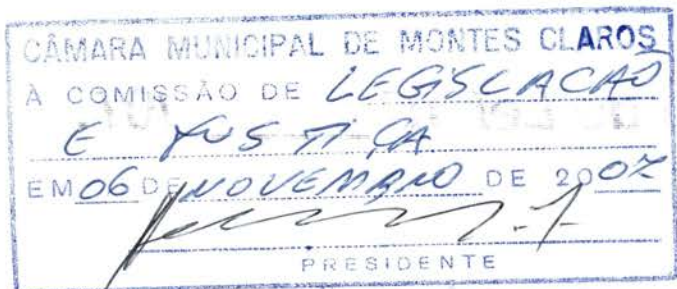 CÂMARA MUNICIPAL DE MONTES CLAROS
À COMISSÃO DE LEGISLACAÕ
E JUSTIÇA
EM 06 DE NOVEMBRO DE 2007
PRESIDENTE